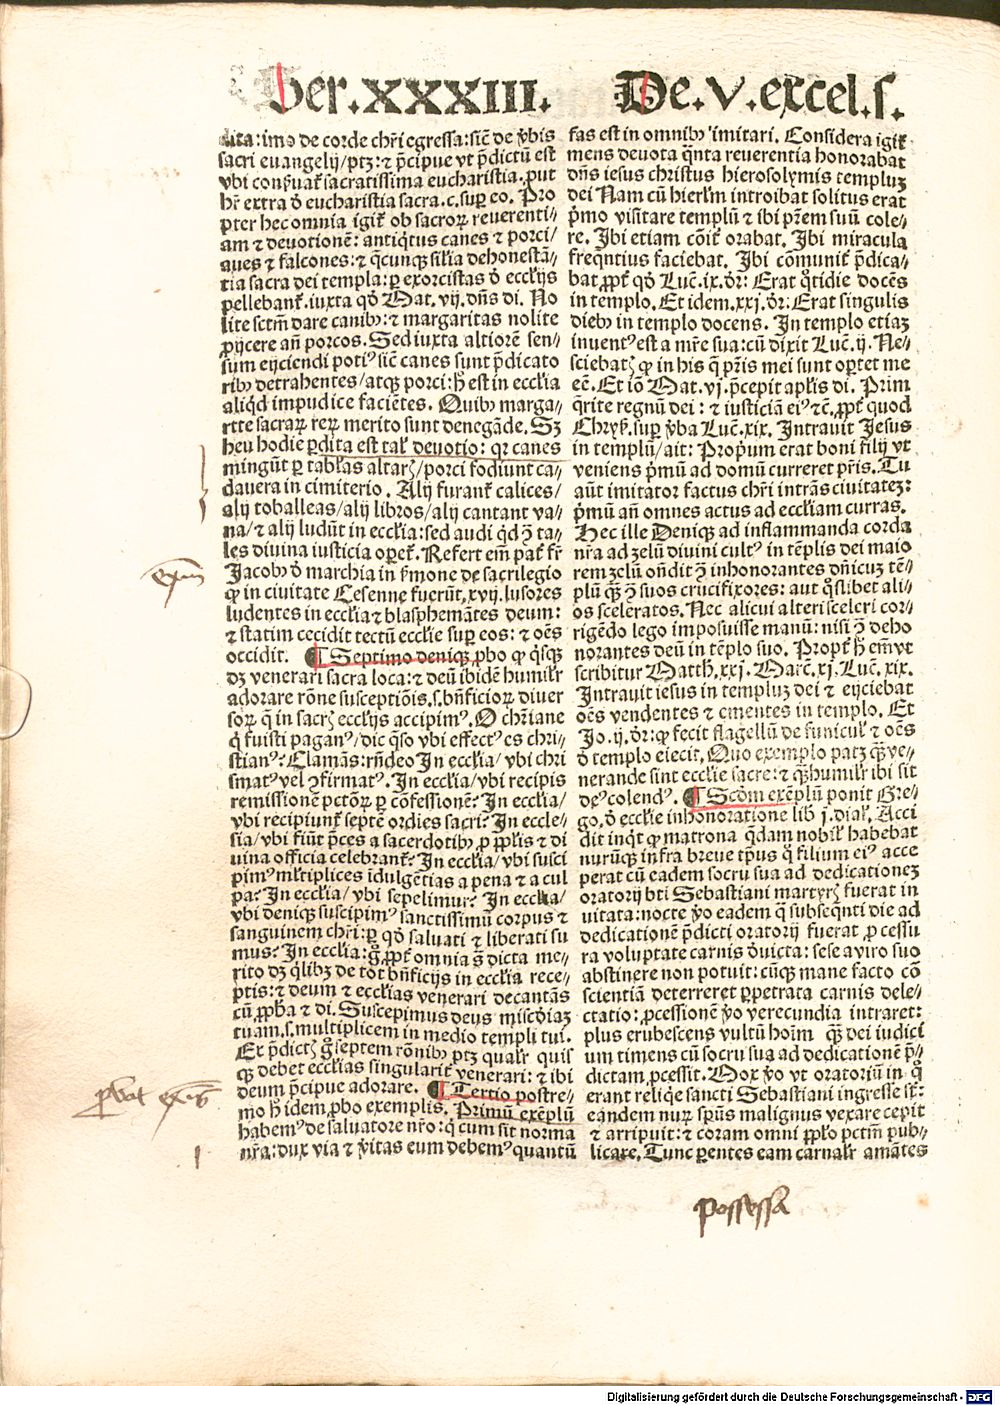 Ser. XXXIII. De. V. excel. s.
dita: imo de corde chr̄i egressa: sic̄ de v̄bis
sacri euangelij/ptꝫ: ⁊ p̄cipue vt p̄dictū est
vbi conẞuat̄ sacratissima eucharistia. ꝓut
hr̄ extra ō eucharistia sacra. c. suꝑ eo. Pro
pter hec omnia igit̄ ob sacroꝝ reuerenti⸗
am ⁊ deuotionē: antiq̇tus canes ⁊ porci/
aues ⁊ falcones: ⁊ q̄cunqꝫ sil̄ia dehonestā⸗
tia sacra dei templa: ꝑ exorcistas ō eccl̄ijs
pellebant̄. iuxta qḋ Mat. vij. dn̄s di. No
lite sctm̄ dare canibꝰ: ⁊ margaritas nolite
ꝓijcere an̄ porcos. Sed iuxta altiorē sen⸗
sum eijciendi potiꝰ sic̄ canes sunt p̄dicato
ribꝰ detrahentes/atqꝫ porci: h̄ est in eccl̄ia
aliq̇d impudice faciētes. Quibꝰ marga⸗
rite sacraꝝ reꝝ merito sunt denegāde. Sꝫ
heu hodie ꝑdita est tal̄ deuotio: qꝛ canes
mingūt ꝑ tabl̄as altarꝭ/porci fodiunt ca⸗
dauera in cimiterio. Alij furant̄ calices/
alij toballeas/alij libros/alij cantant va⸗
na/⁊ alij ludūt in eccl̄ia: sed audi q̇d ꝯ ta⸗
les diuina iusticia oꝑet̄. Refert em̄ pat̄ fr̄
Jacobꝰ ō marchia in ẞmone de sacrilegio
ꝙ in ciuitate Cesenne fuerūt. xvij. lusores
ludentes in eccl̄ia ⁊ blasphemātes deum:
⁊ statim cecidit tectū eccl̄ie suꝑ eos: ⁊ oēs
occidit. ¶ Septimo deniqꝫ ꝓbo ꝙ q̇sqꝫ
dꝫ venerari sacra loca: ⁊ deū ibidē humil̄r
adorare rōne susceptiōis. s. bn̄ficioꝝ diuer
soꝝ q̄ in sacrꝭ eccl̄ijs accipimꝰ. O chr̄iane
q̇ fuisti paganꝰ/dic q̄so vbi effectꝰ es chri⸗
stianꝰ? Clamās: rn̄deo In eccl̄ia/vbi chri
smatꝰ vel ꝯfirmatꝰ. In eccl̄ia/vbi recipis
remissionē pctōꝝ ꝑ cōfessionē? In eccl̄ia/
vbi recipiunt̄ septē ordies sacri? In eccle⸗
sia/vbi fiūt p̄ces a sacerdotibꝰ ꝓ ppl̄is ⁊ di
uina officia celebrant̄? In eccl̄ia/vbi susci
pimꝰ ml̄tiplices idulgētias a pena ⁊ a cul
pa? In eccl̄ia/vbi sepelimur? In eccl̄ia/
vbi deniqꝫ suscipimꝰ sanctissimū corpus ⁊
sanguinem chr̄i: ꝑ qḋ saluati ⁊ liberati su
mus? In eccl̄ia: g̊ ꝓpt̄ omnia s̄ dicta me⸗
rito dꝫ q̇libꝫ de tot bn̄ficijs in eccl̄ia rece⸗
ptis: ⁊ deum ⁊ eccl̄ias venerari decantās
cū ꝓpha ⁊ di. Suscepimus deus mīscōiaꝫ
tuam. s. multiplicem in medio templi tui.
Ex p̄dictꝭ g̊ septem rōnibꝰ ptꝫ qual̄r quis
qꝫ debet eccl̄ias singularit̄ venerari: ⁊ ibi
deum p̄cipue adorare. ¶ Tertio postre⸗
mo h̄ idem ꝓbo exemplis. Primū exēplū
habemꝰ de saluatore nr̄o: q̇ cum sit norma
nr̄a: dux via ⁊ v̄itas eum debemꝰ quantū
fas est in omnibꝰ imitari. Considera igit̄
mens deuota q̄nta reuerentia honorabat
dn̄s iesus christus hierosolymis templuꝫ
dei Nam cū hierl̄m introibat solitus erat
p̄mo visitare templū ⁊ ibi pr̄em suū cole⸗
re. Ibi etiam cōit̄ orabat. Ibi miracula
freq̄ntius faciebat. Ibi cōmunit̄ p̄dica⸗
bat ꝓpt̄ qḋ Luc̄. ix. dr̄: Erat q̊tidie docēs
in templo. Et idem. xxj. dr̄: Erat singulis
diebꝰ in templo docens. In templo etiaꝫ
inuentꝰ est a mr̄e sua: cū dixit Luc̄. ij. Ne⸗
sciebatꝭ ꝙ in his q̄ pr̄is mei sunt oꝑtet me
eē. Et iō Mat. vj. p̄cepit apl̄is di. Prim
q̄rite regnū dei: ⁊ iusticiā eiꝰ ⁊c̄. ꝓpt̄ quod
Chryẞ. suꝑ v̄ba Luc̄. xix. Intrauit Jesus
in templū/ait: Propriū erat boni filij vt
veniens p̄mū ad domū curreret pr̄is. Tu
aūt imitator factus chr̄i intrās ciuitateꝫ:
p̄mū an̄ omnes actus ad eccl̄iam curras.
Hec ille Deniqꝫ ad inflammanda corda
nr̄a ad zelū diuini cultꝰ in tēplis dei maio
rem zelū on̄dit ꝯ inhonorantes dn̄icuꝫ tē⸗
plū qꝫ ꝯ suos crucifixores: aut q̊slibet ali⸗
os sceleratos. Nec alicui alteri sceleri cor⸗
rigēdo lego imposuisse manū: nisi ꝯ deho
norantes deū in tēplo suo. Propt̄ h̄ em̄ vt
scribitur Matth. xxj. Marc̄. xj. Luc̄. xix.
Intrauit iesus in templuꝫ dei ⁊ eijciebat
oēs vendentes ⁊ ementes in templo. Et
Jo. ij. dr̄: ꝙ fecit flagellū de funicul̄ ⁊ oēs
ō templo eiecit. Quo exemplo patꝫ qꝫ ve⸗
nerande sint eccl̄ie sacre: ⁊ qꝫ humil̄r ibi sit
deꝰ colendꝰ. ¶ Scd̄m exēplū ponit Gre⸗
go. ō eccl̄ie inhonoratione lib̄ j. dial̄. Acci
dit inq̇t ꝙ matrona q̄dam nobil̄ habebat
nurūqꝫ infra breue tp̄us q̊ filium eiꝰ acce
perat cū eadem socru sua ad dedicationeꝫ
oratorij bt̄i Sebastiani martyrꝭ fuerat in
uitata: nocte v̄o eadem q̄ subseq̄nti die ad
dedicationē p̄dicti oratorij fuerat ꝓcessu
ra voluptate carnis ōuicta: sese a viro suo
abstinere non potuit: cūqꝫ mane facto cō
scientiā deterreret ꝑpetrata carnis dele⸗
ctatio: ꝓcessionē v̄o verecundia intraret:
plus erubescens vultū hoīm qꝫ dei iudici
um timens cū socru sua ad dedicationē p̄⸗
dictam ꝓcessit. Mox v̄o vt oratoriū in q̊
erant reliq̄e sancti Sebastiani ingresse st̄:
eandem nurꝭ sp̄us malignus vexare cepit
⁊ arripuit: ⁊ coram omni ppl̄o pctm̄ pub⸗
licare. Tunc ꝑentes eam carnal̄r amātes
possessa
Digitalisierung gefördert durch die Deutsche Forschungsgemeinschaft - DFG